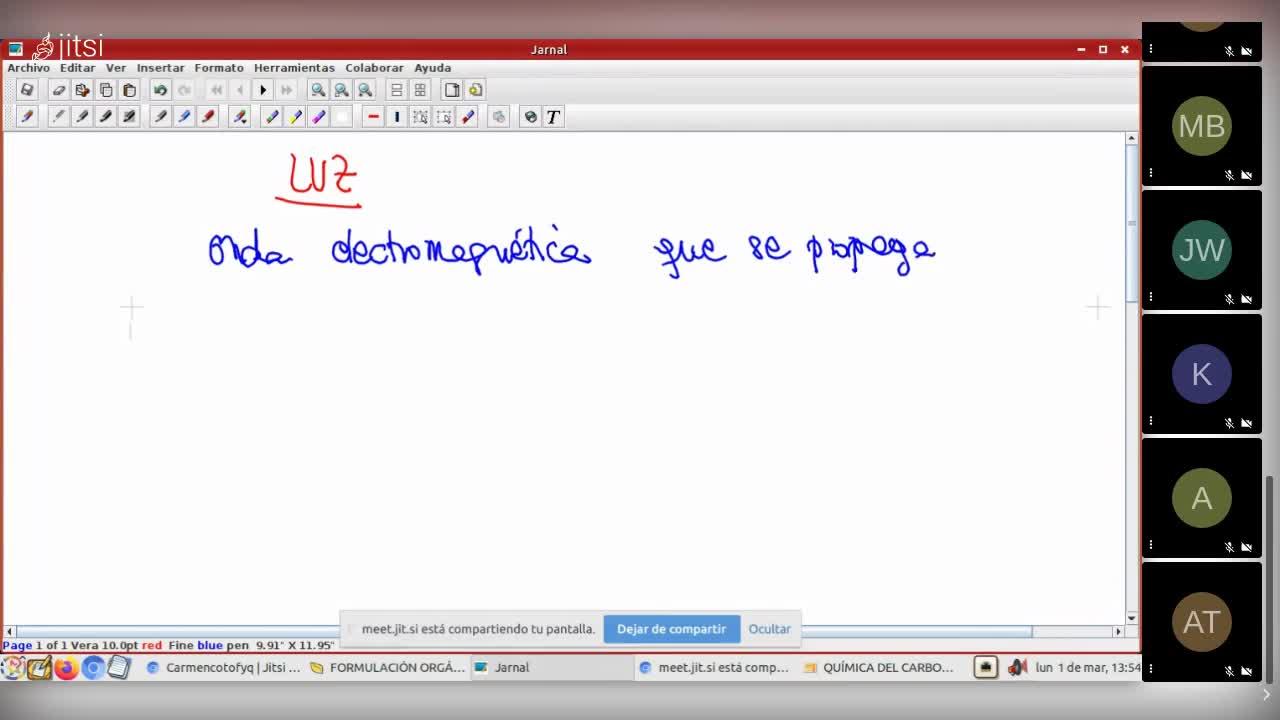 jitsi
Jarnal
Archivo Editar Ver Insertar Formato Herramientas Colaborar Ayuda
T
LUZ
onda electromagnética que se propaga
MB
JW
K
A
AT
meet.jit.si está compartiendo tu pantalla. Dejar de compartir Ocultar
Page 1 of 1 Vera 10.0pt red Fine blue pen 9.91" X 11.95"
Carmencotofyq | Jitsi ... FORMULACIÓN ORGÁ... Jarnal meet.jit.si está comp... QUÍMICA DEL CARBO... lun 1 de mar, 13:54